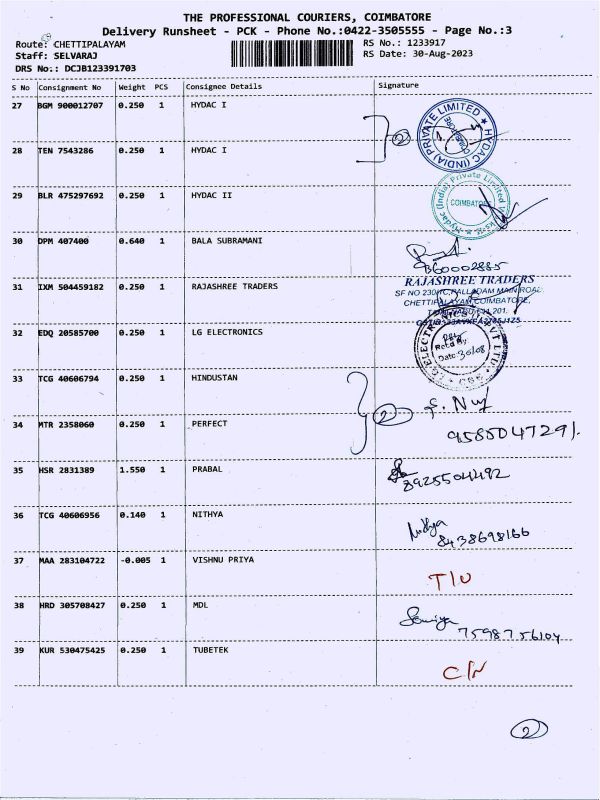 THE PROFESSIONAL COURIERS, COIMBATORE
Delivery Runsheet - PCK - Phone No.:0422-3505555 - Page No.:3
Route: CHETTIPALAYAM
RS No.: 1233917
Staff: SELVARAJ
RS Date: 30-Aug-2023
DRS No.: DCJB123391703
S No Consignment No Weight PCS Consignee Details Signature
27 BGM 900012707 0.250 1 HYDAC I
2
HYDAC (INDIA) PRIVATE LIMITED ★
COIMBATORE
28 TEN 7543286 0.250 1 HYDAC I
29 BLR 475297692 0.250 1 HYDAC II
Hydac (India) Private Limited
COIMBATORE
30 DPM 407400 0.640 1 BALA SUBRAMANI
9360002885
31 IXM 504459182 0.250 1 RAJASHREE TRADERS
RAJASHREE TRADERS
SF NO 230/1C, PALLADAM MAIN ROAD
CHETTIPALAYAM, COIMBATORE,
32 EDQ 20585700 0.250 1 LG ELECTRONICS
Recd By
Date: 30/08
33 TCG 40606794 0.250 1 HINDUSTAN
2
34 MTR 2358060 0.250 1 PERFECT
9585047291
35 HSR 2831389 1.550 1 PRABAL
8925504492
36 TCG 40606956 0.140 1 NITHYA
Nithya
8438698166
37 MAA 283104722 -0.005 1 VISHNU PRIYA
T/U
38 HRD 305708427 0.250 1 MDL
7598756104
39 KUR 530475425 0.250 1 TUBETEK
C/N
2